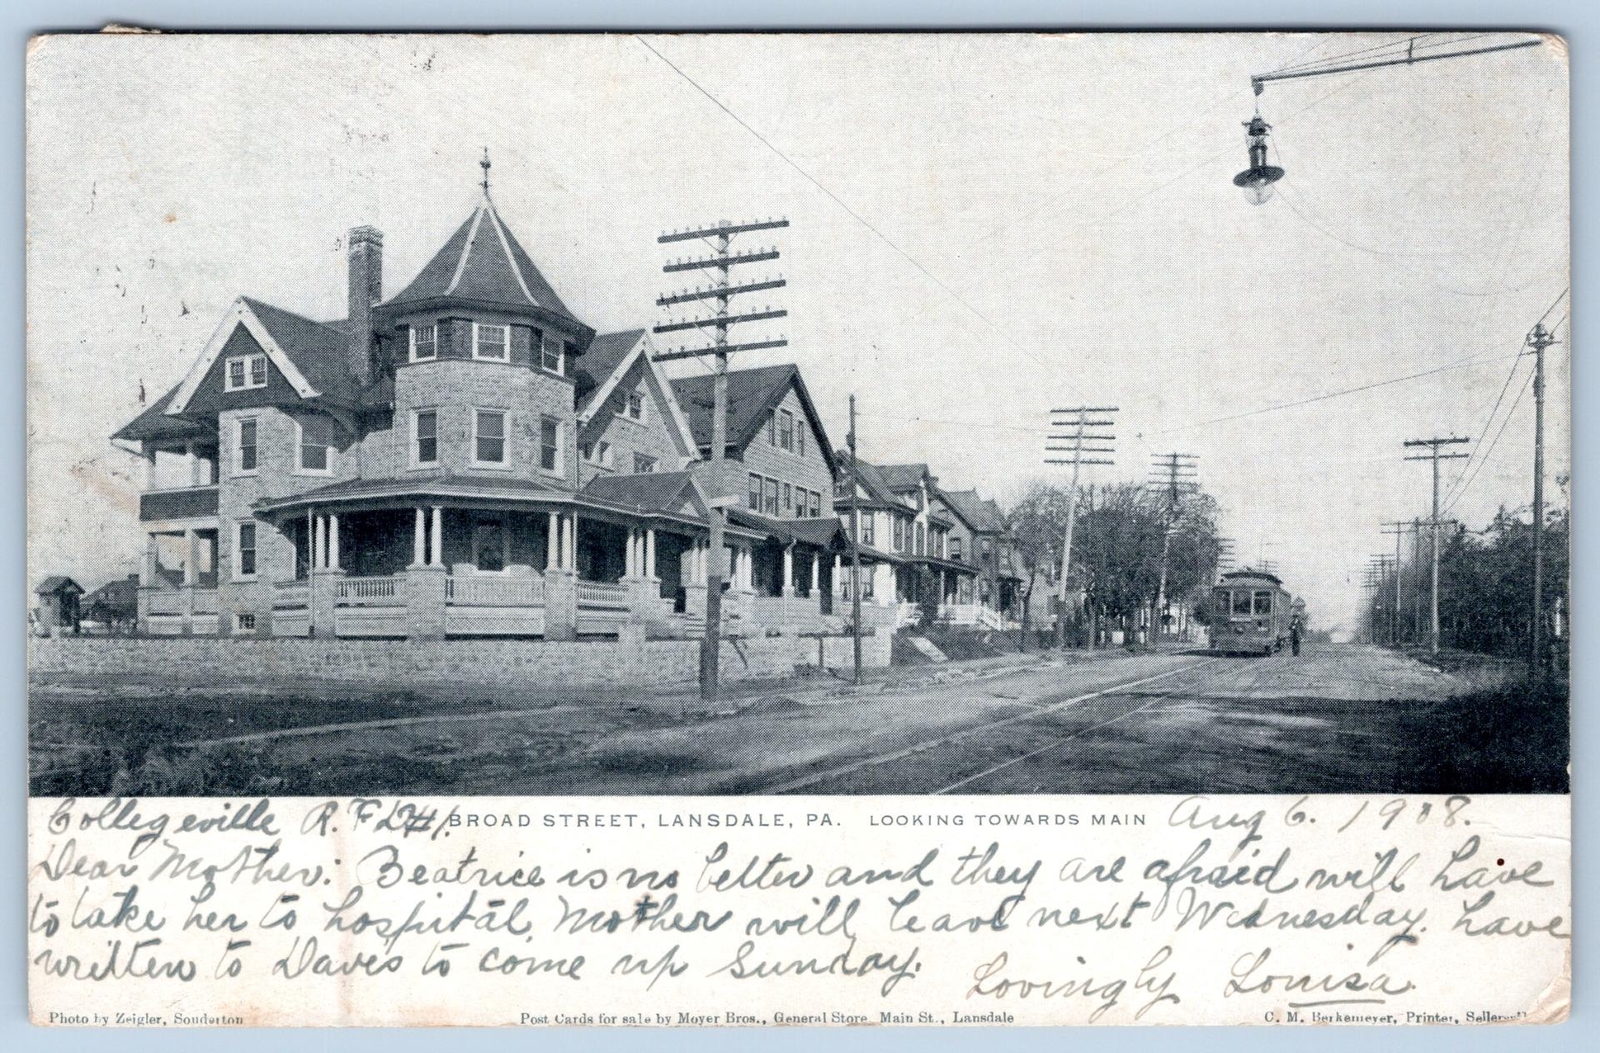 Collegeville R.F.D#1. BROAD STREET, LANSDALE, PA. LOOKING TOWARDS MAIN Aug 6. 1908.
Dear Mother: Beatrice is no better and they are afraid will have
to take her to hospital. Mother will leave next Wednesday. have
written to Daves to come up Sunday.
Lovingly Louisa.
Photo by Zeigler, Souderton Post Cards for sale by Moyer Bros., General Store, Main St., Lansdale C. M. Berkemeyer, Printer,